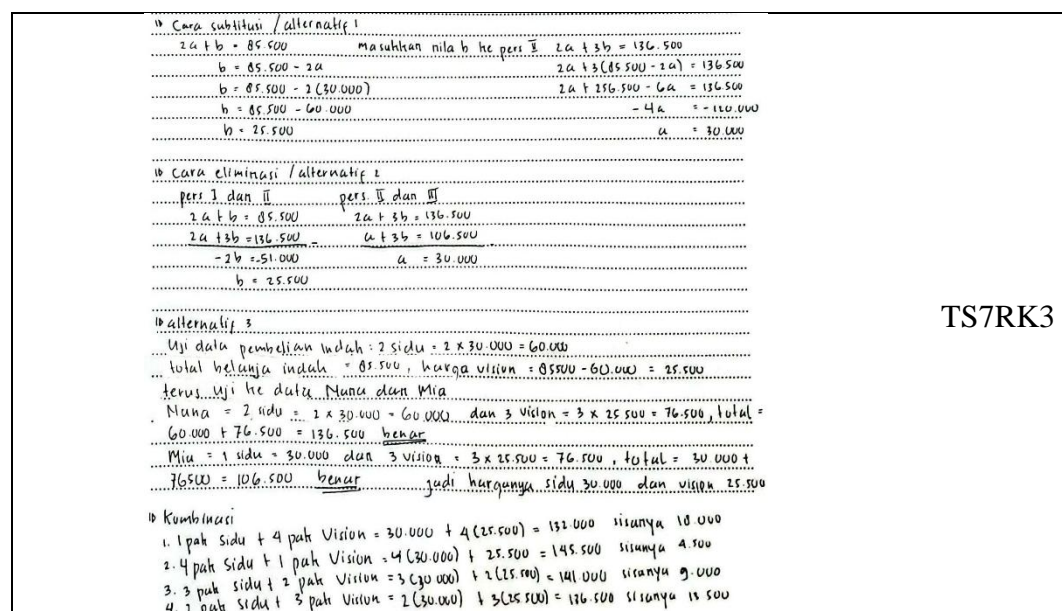 Cara subtitusi / alternatif 1
2a + b = 85.500 masukkan nila b ke pers II 2a + 3b = 136.500
b = 85.500 - 2a 2a + 3(85500 - 2a) = 136.500
b = 85.500 - 2(30.000) 2a + 256.500 - 6a = 136.500
b = 85.500 - 60.000 -4a = -120.000
b = 25.500 a = 30.000
Cara eliminasi / alternatif 2
pers I dan II pers. II dan III
2a + b = 85.500 2a + 3b = 136.500
2a + 3b = 136.500 - a + 3b = 106.500 -
-2b = -51.000 a = 30.000
b = 25.500
alternatif 3
Uji data pembelian indah : 2 sidu = 2 x 30.000 = 60.000
total belanja indah = 85.500, harga vision = 85500 - 60.000 = 25.500
terus uji ke data Nana dan Mia
Nana = 2 sidu = 2 x 30.000 = 60.000 dan 3 vision = 3 x 25.500 = 76.500, total =
60.000 + 76.500 = 136.500 benar
Mia = 1 sidu = 30.000 dan 3 vision = 3 x 25.500 = 76.500, total = 30.000 +
76500 = 106.500 benar jadi harganya sidy 30.000 dan vision 25.500
Kombinasi
1. 1 pak sidu + 4 pak Vision = 30.000 + 4(25.500) = 132.000 sisanya 18.000
2. 4 pak sidu + 1 pak Vision = 4(30.000) + 25.500 = 145.500 sisanya 4.500
3. 3 pak sidu + 2 pak Vision = 3(30.000) + 2(25.500) = 141.000 sisanya 9.000
4. 2 pak sidu + 3 pak Vision = 2(30.000) + 3(25.500) = 136.500 sisanya 13.500
TS7RK3